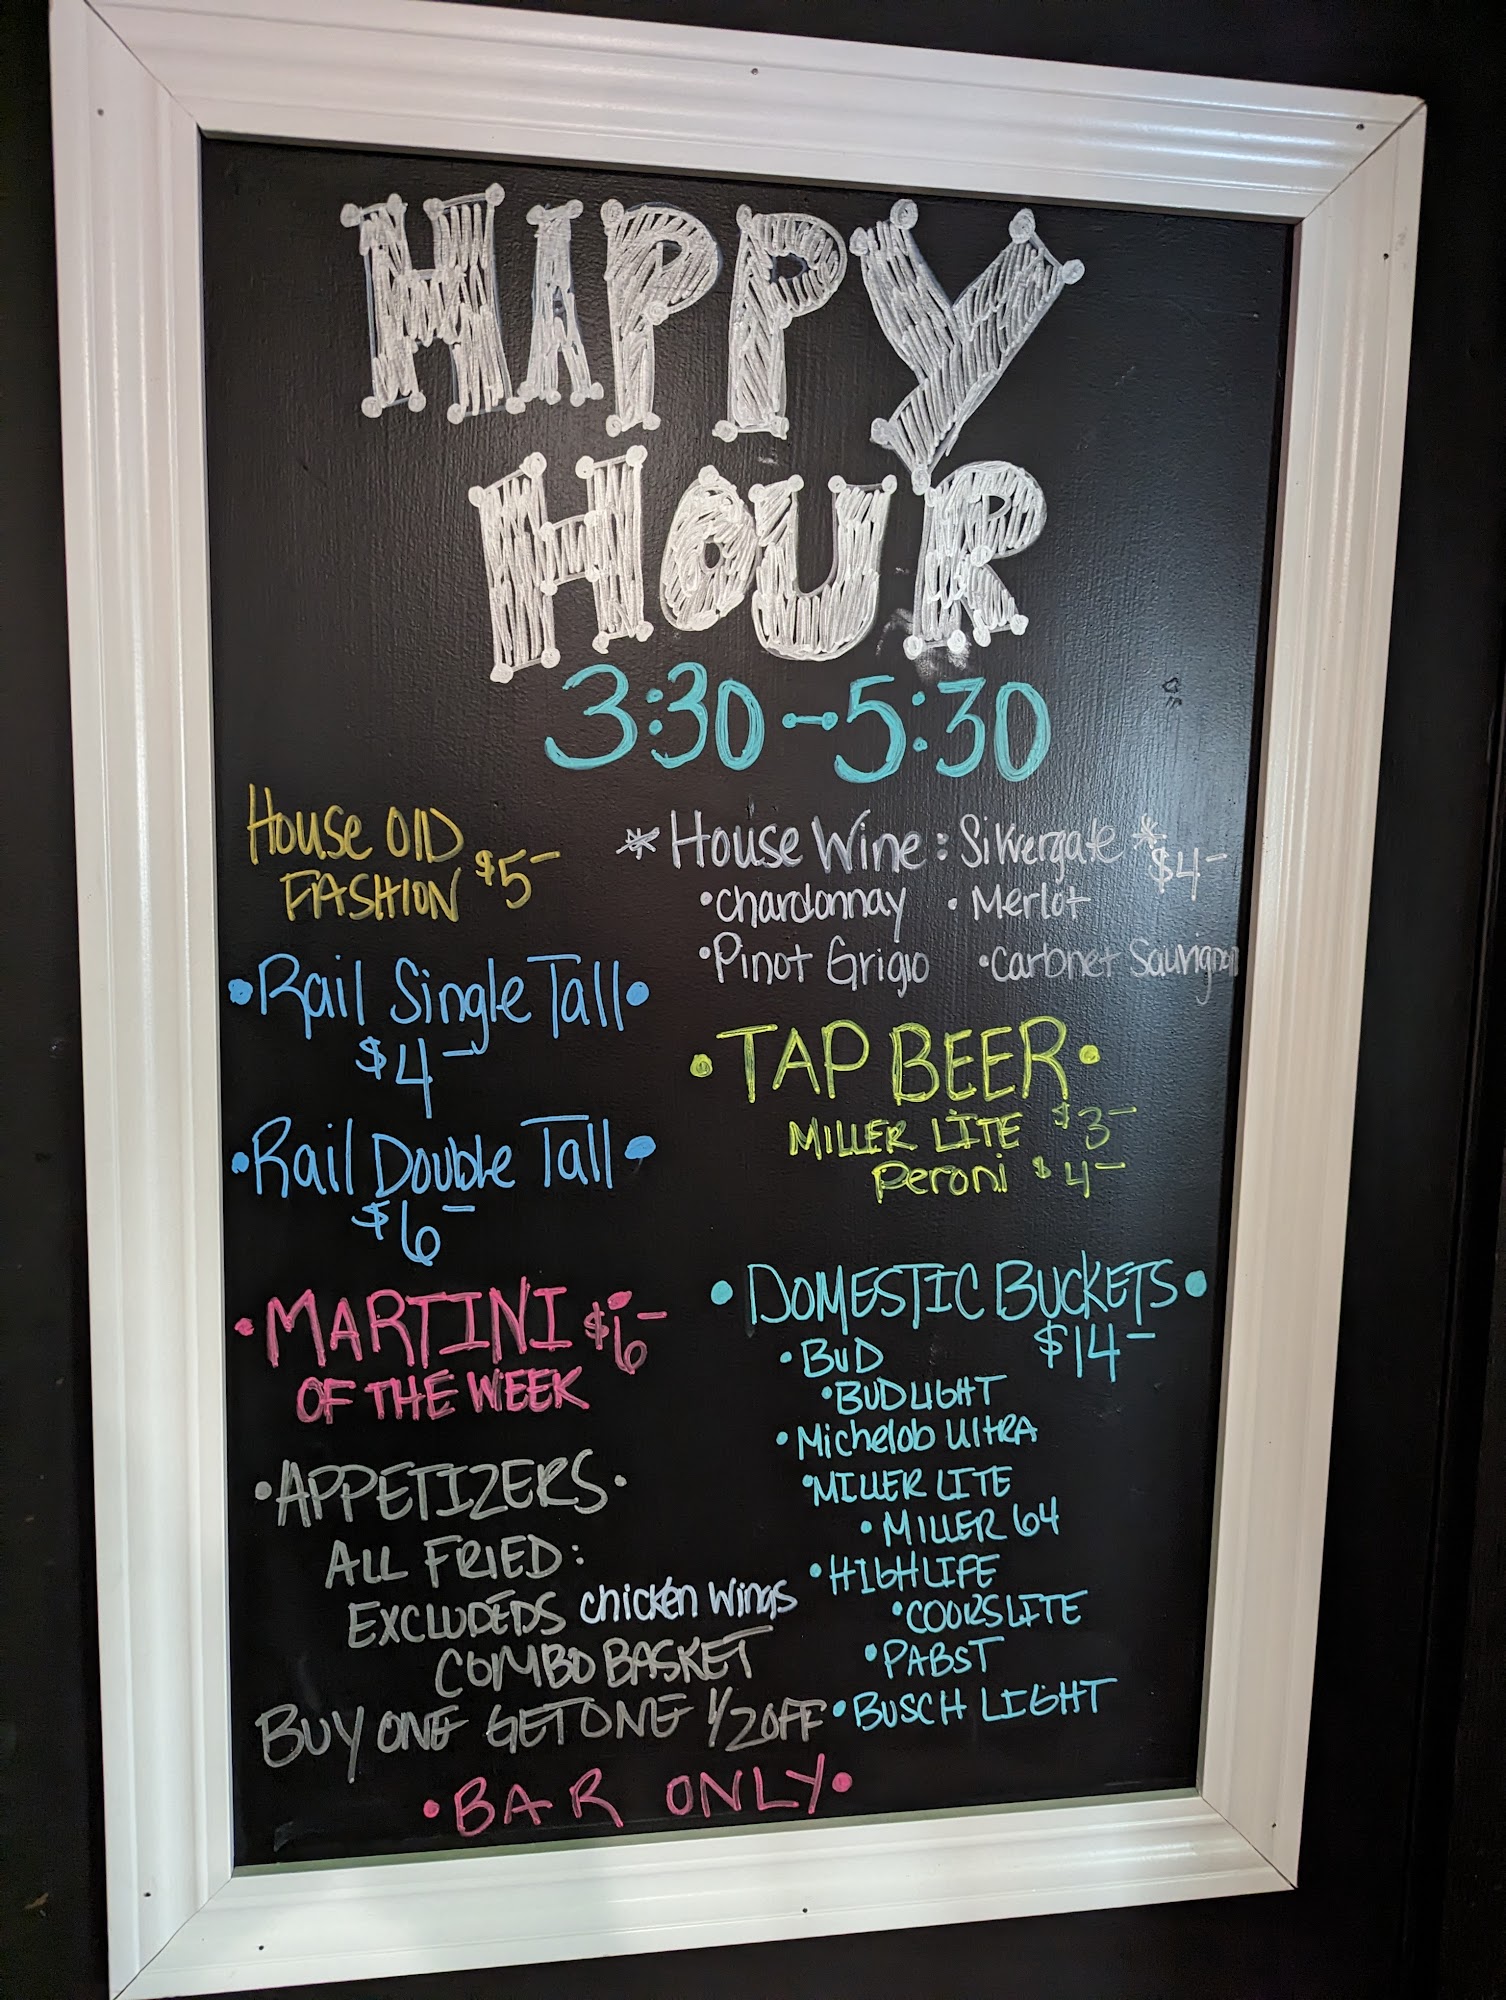 HAPPY
HOUR
3:30-5:30
House OlD
FASHION $5-
•Rail Single Tall•
$4-
•Rail Double Tall•
$6-
•MARTINI $6-
OF THE WEEK
•APPETIZERS•
ALL FRIED:
EXCLUDEDS chicken wings
COMBO BASKET
BUY ONE GET ONE 1/2 OFF
* House Wine: Silvergate *
$4-
•Chardonnay •Merlot
•Pinot Grigio •Carbnet Sauvignon
•TAP BEER•
MILLER LITE $3-
Peroni $4-
•DOMESTIC BUCKETS•
$14-
•BUD
•BUDLIGHT
•Michelob UltRA
•MILLER LITE
•MILLER 64
•HIGHLIFE
•COORSLITE
•PABST
•BUSCH LIGHT
•BAR ONLY•